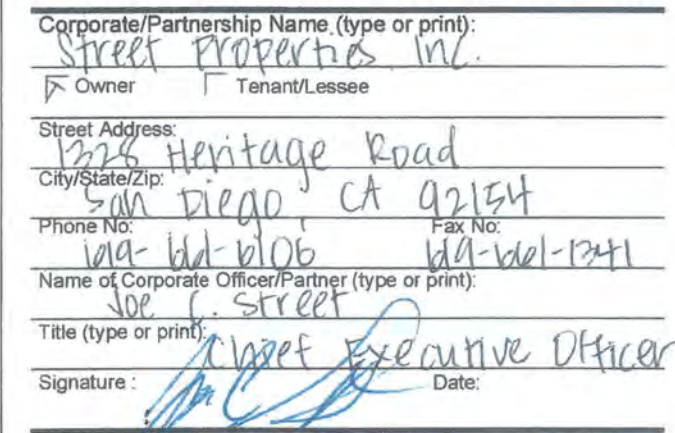 Corporate/Partnership Name (type or print):
Street Properties Inc.
Owner Tenant/Lessee
Street Address:
1328 Heritage Road
City/State/Zip:
San Diego, CA 92154
Phone No: Fax No:
619-661-6106 619-661-1341
Name of Corporate Officer/Partner (type or print):
Joe C. Street
Title (type or print):
Chief Executive Officer
Signature : Date: